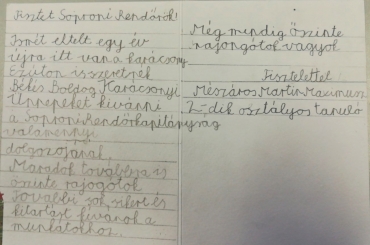 Tisztelt Soproni Rendőrök!
Ismét eltelt egy év
újra itt van a karácsony
Ezúton is szeretnék
Békés Boldog Karácsonyi
Ünnepeket kívánni
a Soproni Rendőrkapitányság
valamennyi
dolgozójának.
Maradok továbbra is
őszinte rajongótok
További sok sikert és
kitartást kívánok a
munkátokhoz.
Még mindig őszinte
rajongótok vagyok
Tisztelettel
Mészáros Martin Maximusz
2-dik osztályos tanuló